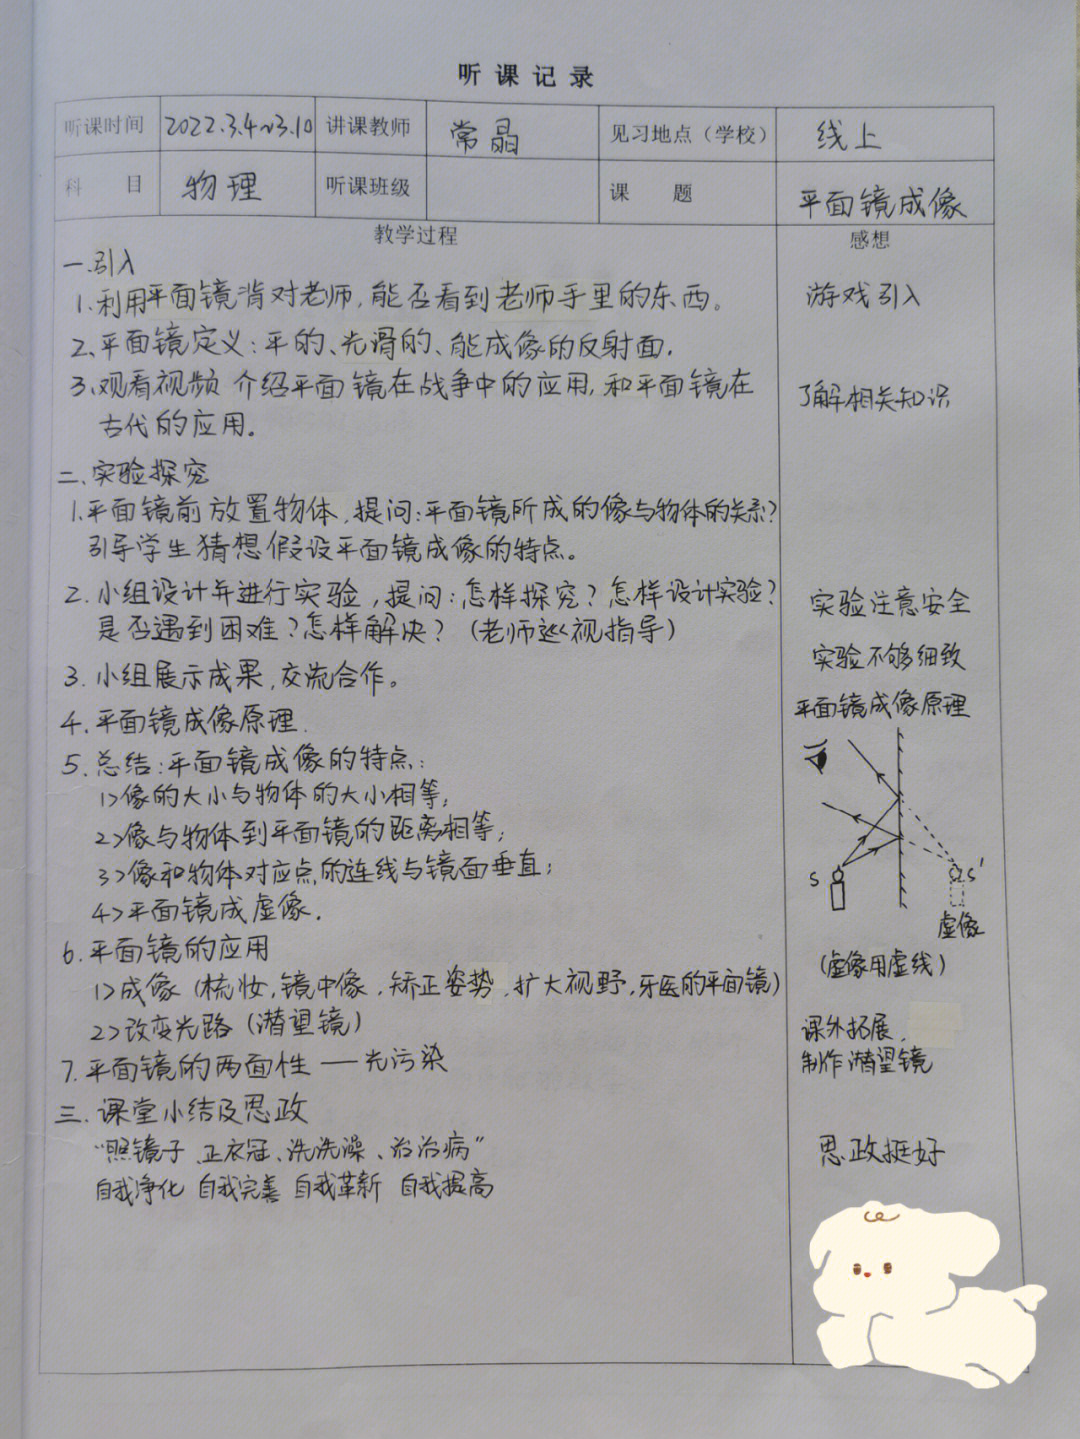 听课记录
听课时间 2022.3.4~3.10 讲课教师 常晶 见习地点（学校） 线上
科 目 物理 听课班级 课 题 平面镜成像
教学过程 感想
一.引入
1.利用平面镜背对老师,能否看到老师手里的东西。 游戏引入
2、平面镜定义:平的、光滑的、能成像的反射面.
3、观看视频 介绍平面镜在战争中的应用,和平面镜在 了解相关知识
古代的应用.
二、实验探究
1.平面镜前放置物体,提问:平面镜所成的像与物体的关系?
引导学生猜想假设平面镜成像的特点。
2.小组设计并进行实验,提问:怎样探究?怎样设计实验? 实验注意安全
是否遇到困难?怎样解决?(老师巡视指导)
实验不够细致
3.小组展示成果,交流合作。
4.平面镜成像原理. 平面镜成像原理
5.总结:平面镜成像的特点:
1>像的大小与物体的大小相等;
2>像与物体到平面镜的距离相等;
3>像和物体对应点的连线与镜面垂直; S S'
4>平面镜成虚像. 虚像
6.平面镜的应用 (虚像用虚线)
1>成像(梳妆,镜中像,矫正姿势,扩大视野,牙医的平面镜)
2>改变光路(潜望镜) 课外拓展,
7.平面镜的两面性——光污染 制作潜望镜
三.课堂小结及思政
“照镜子、正衣冠、洗洗澡、治治病” 思政挺好
自我净化 自我完善 自我革新 自我提高